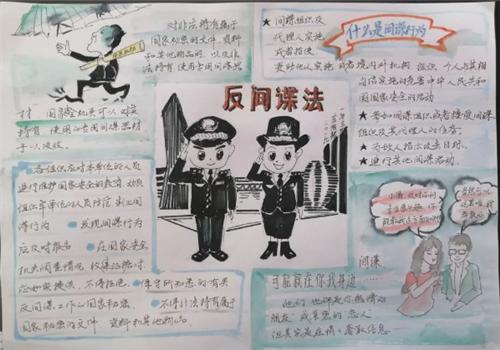 对非法持有属于
国家秘密的文件、资料
和其他物品的，以及非
法持有、使用专用间谍器
材，国家安全机关可以
持有、使用的专用间谍器材
予以没收。
各组织应对本单位的人员
进行维护国家安全的教育，动员
组织本单位的人员防范、制止间
谍行为
发现间谍行为
应及时报告
在国家安全
机关调查情况、收集
如实提供，不得拒绝。
保守所知悉的有关
反间谍工作的国家秘密。
不得非法持有属于
国家秘密的文件、资料和其他物品。
反间谍法
什么是间谍行为
★ 间谍组织及
代理人实施
或者指使、
资助他人实施，或者境内外机构、组织、个人与其相
勾结实施的危害中华人民共和
国国家安全的活动
★ 参加间谍组织或者接受间谍
组织及其代理人的任务；
★ 为敌人指示攻击目标。
★ 进行其他间谍活动。
间谍
可能就在你我身边……
他们也许是你热情的
朋友，或亲密的恋人
但其实是在情、套取信息